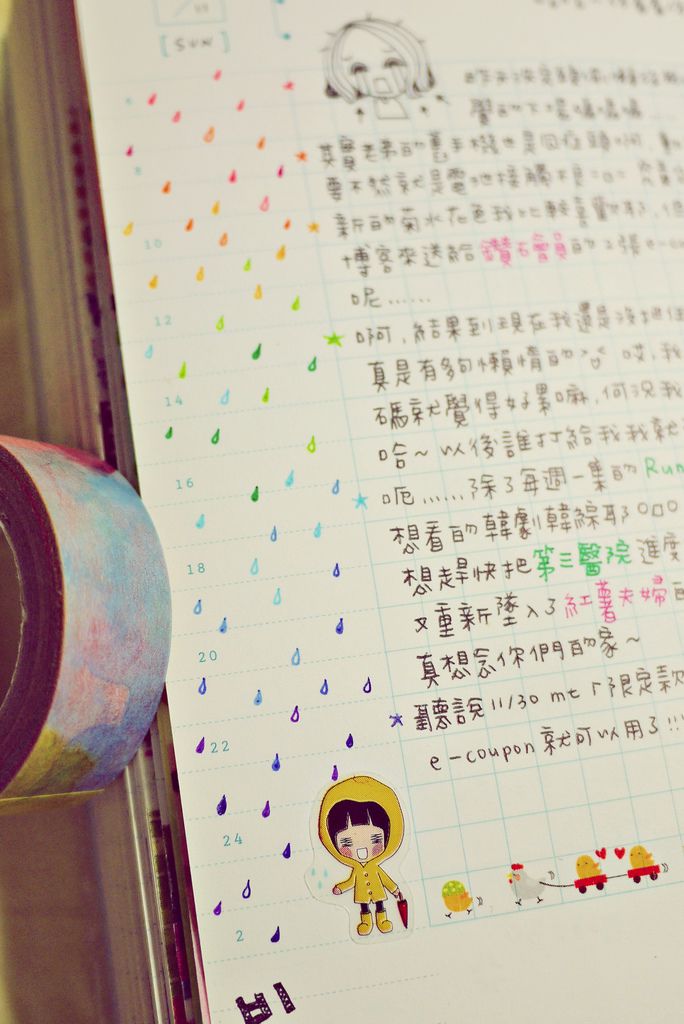 [SUN]
英寶老弟的舊手機也是同症頭啊,
要不然就是電池接觸不良=口=
新的菊水花色我比較喜歡耶,但
博客來送給鑽石會員的2張e-cou
呢……
啊,結果到現在我還是沒把
真是有夠懶惰的 哎,我
碼就覺得好累嘛,何況我
哈~以後誰打給我我就
呃……除了每週一集的Run
想看的韓劇韓綜耶
想趕快把第三醫院進度
又重新墜入了紅薯夫婦的
真想念你們的家~
聽說11/30 mt「限定款
e-coupon就可以用了!!!
8
10
12
14
16
18
20
22
24
2